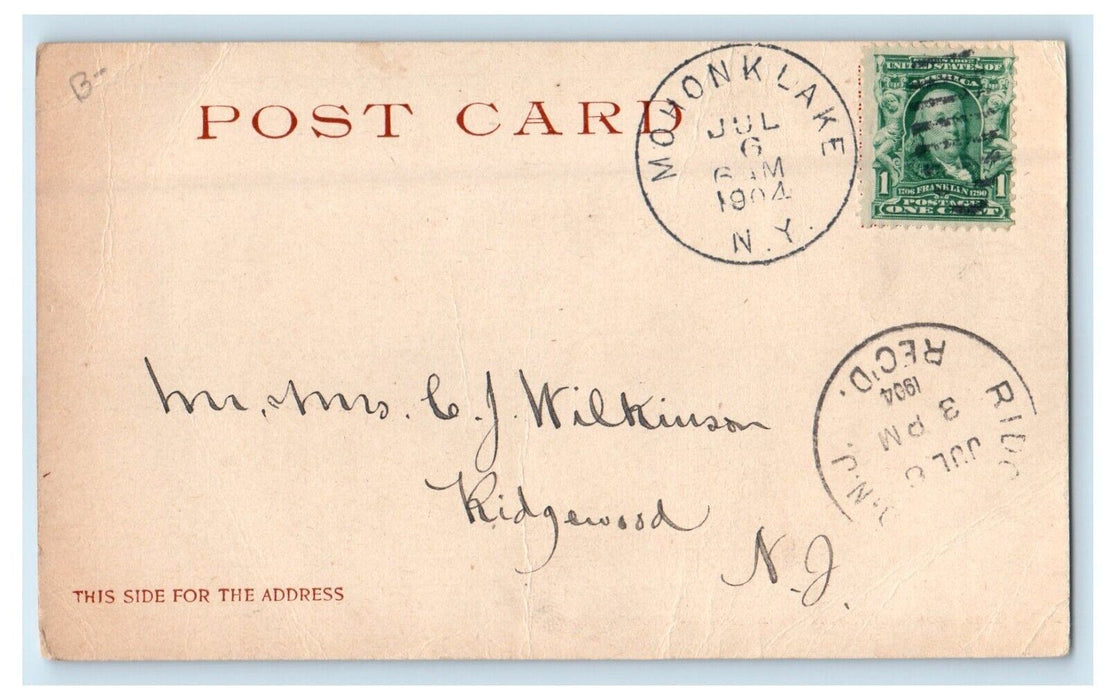 B-
POST CARD
MOHONK LAKE
JUL
6
6 AM
1904
N.Y.
UNITED STATES OF
AMERICA
1 1706 FRANKLIN 1790 1
POSTAGE
ONE CENT
REC'D.
1904
3 PM
JUL
N.J.
Mr. Mrs. C. J. Wilkinson
Ridgewood
N.J.
THIS SIDE FOR THE ADDRESS